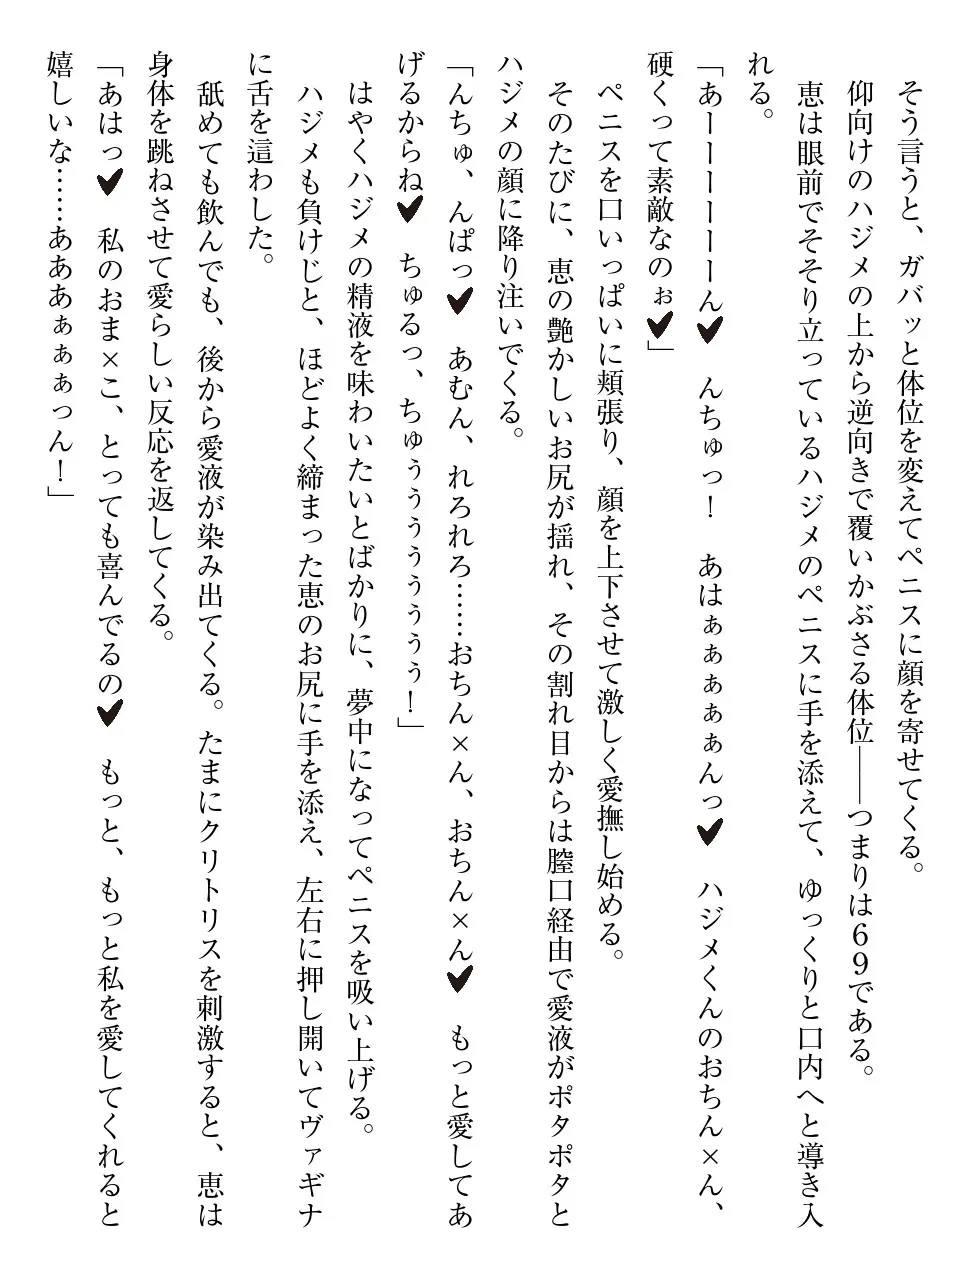 そう言うと、ガバッと体位を変えてペニスに顔を寄せてくる。
仰向けのハジメの上から逆向きで覆いかぶさる体位――つまりは69である。
恵は眼前でそそり立っているハジメのペニスに手を添えて、ゆっくりと口内へと導き入
れる。
「あーーーーーーん♥　んちゅっ！　あはぁぁぁぁぁんっ♥　ハジメくんのおちん×ん、
硬くって素敵なのぉ♥」
ペニスを口いっぱいに頬張り、顔を上下させて激しく愛撫し始める。
そのたびに、恵の艶かしいお尻が揺れ、その割れ目からは膣口経由で愛液がポタポタと
ハジメの顔に降り注いでくる。
「んちゅ、んぱっ♥　あむん、れろれろ……おちん×ん、おちん×ん♥　もっと愛してあ
げるからね♥　ちゅるっ、ちゅぅぅぅぅぅぅぅ！」
はやくハジメの精液を味わいたいとばかりに、夢中になってペニスを吸い上げる。
ハジメも負けじと、ほどよく締まった恵のお尻に手を添え、左右に押し開いてヴァギナ
に舌を這わした。
舐めても飲んでも、後から愛液が染み出てくる。たまにクリトリスを刺激すると、恵は
身体を跳ねさせて愛らしい反応を返してくる。
「あはっ♥　私のおま×こ、とっても喜んでるの♥　もっと、もっと私を愛してくれると
嬉しいな……あああぁぁぁっん！」